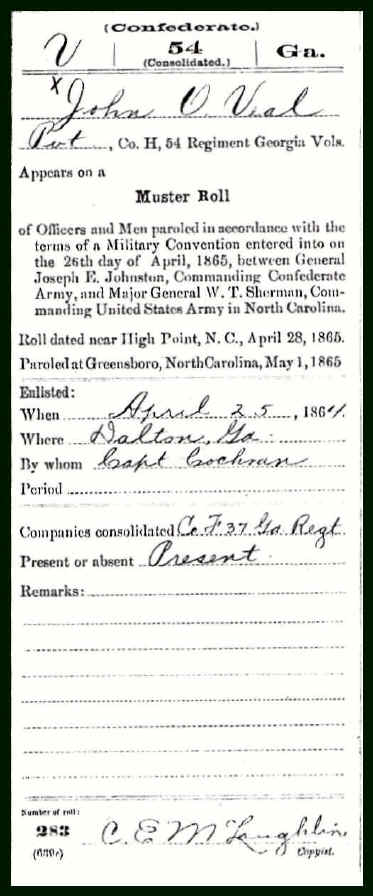 (Confederate.)
V | 54 | Ga.
(Consolidated.)
x
John O. Veal
Pvt, Co. H, 54 Regiment Georgia Vols.
Appears on a
Muster Roll
of Officers and Men paroled in accordance with the
terms of a Military Convention entered into on
the 26th day of April, 1865, between General
Joseph E. Johnston, Commanding Confederate
Army, and Major General W. T. Sherman, Com-
manding United States Army in North Carolina.
Roll dated near High Point, N. C., April 28, 1865.
Paroled at Greensboro, North Carolina, May 1, 1865
Enlisted:
When April 25, 1864.
Where Dalton, Ga.
By whom Capt Cochran
Period
Companies consolidated Co F 37 Ga Regt
Present or absent Present
Remarks:
Number of roll:
283 C. E. McLaughlin
Copyist.